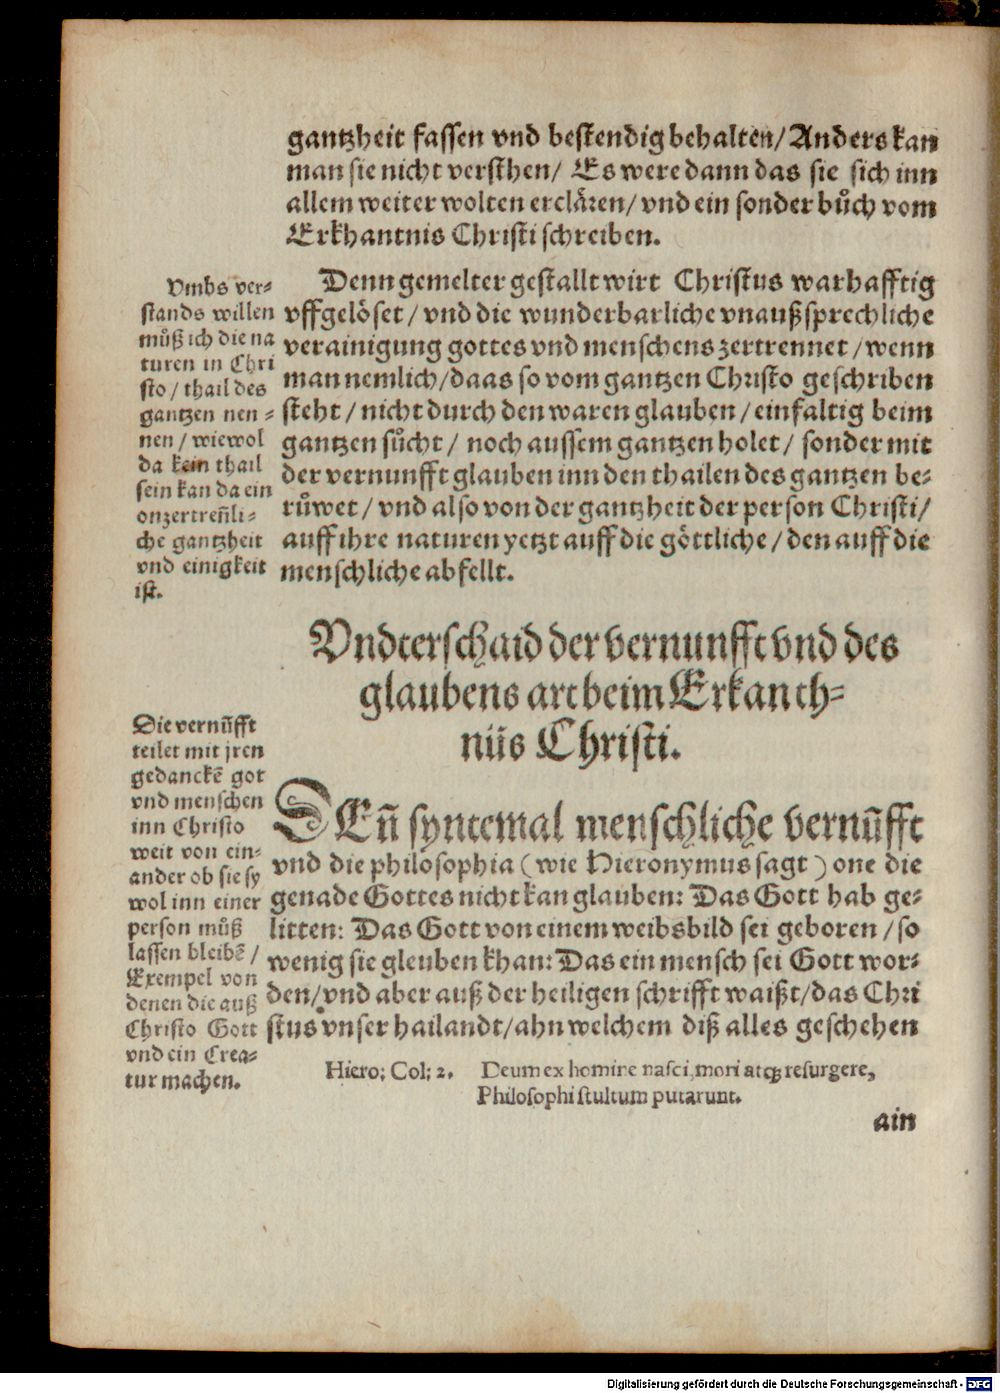 gantzheit fassen vnd bestendig behalten/ Anders kan
man sie nicht versthen/ Es were dann das sie sich inn
allem weiter wolten erclären/ vnd ein sonder bůch vom
Erkhantnis Christi schreiben.
Denn gemelter gestallt wirt Christus warhafftig
vffgelöset/ vnd die wunderbarliche vnaußsprechliche
verainigung gottes vnd menschens zertrennet/ wenn
man nemlich/ daas so vom gantzen Christo geschriben
steht/ nicht durch den waren glauben/ einfaltig beim
gantzen sůcht/ noch aussem gantzen holet/ sonder mit
der vernunfft glauben inn den thailen des gantzen be-
růwet/ vnd also von der gantzheit der person Christi/
auff ihre naturen yetzt auff die göttliche/ den auff die
menschliche abfellt.
Vmbs ver-
stands willen
můß ich die na
turen in Chri
sto/ thail des
gantzen nen-
nen/ wiewol
da kein thail
sein kan da ein
onzertreñli-
che gantzheit
vnd einigkeit
ist.
Vndterschaid der vernunfft vnd des
glaubens art beim Erkanth-
nüs Christi.
DEñ syntemal menschliche vernũfft
vnd die philosophia (wie Hieronymus sagt) one die
genade Gottes nicht kan glauben: Das Gott hab ge-
litten: Das Gott von einem weibsbild sei geboren/ so
wenig sie gleuben khan: Das ein mensch sei Gott wor-
den/ vnd aber auß der heiligen schrifft waißt/ das Chri
stus vnser hailandt/ ahn welchem diß alles geschehen
Die vernũfft
teilet mit jren
gedanckẽ got
vnd menschen
inn Christo
weit von ein-
ander ob sie sy
wol inn einer
person můß
lassen bleibẽ/
Exempel von
denen die auß
Christo Gott
vnd ein Crea-
tur machen.
Hiero: Col: 2. Deum ex homine nasci, mori atqꝫ resurgere,
Philosophi stultum putarunt.
ain
Digitalisierung gefördert durch die Deutsche Forschungsgemeinschaft - DFG